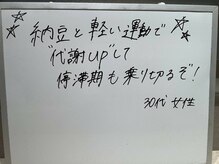 ☆納豆と軽い運動で☆
"代謝up"して
停滞期も乗り切るぞ!
30代 女性